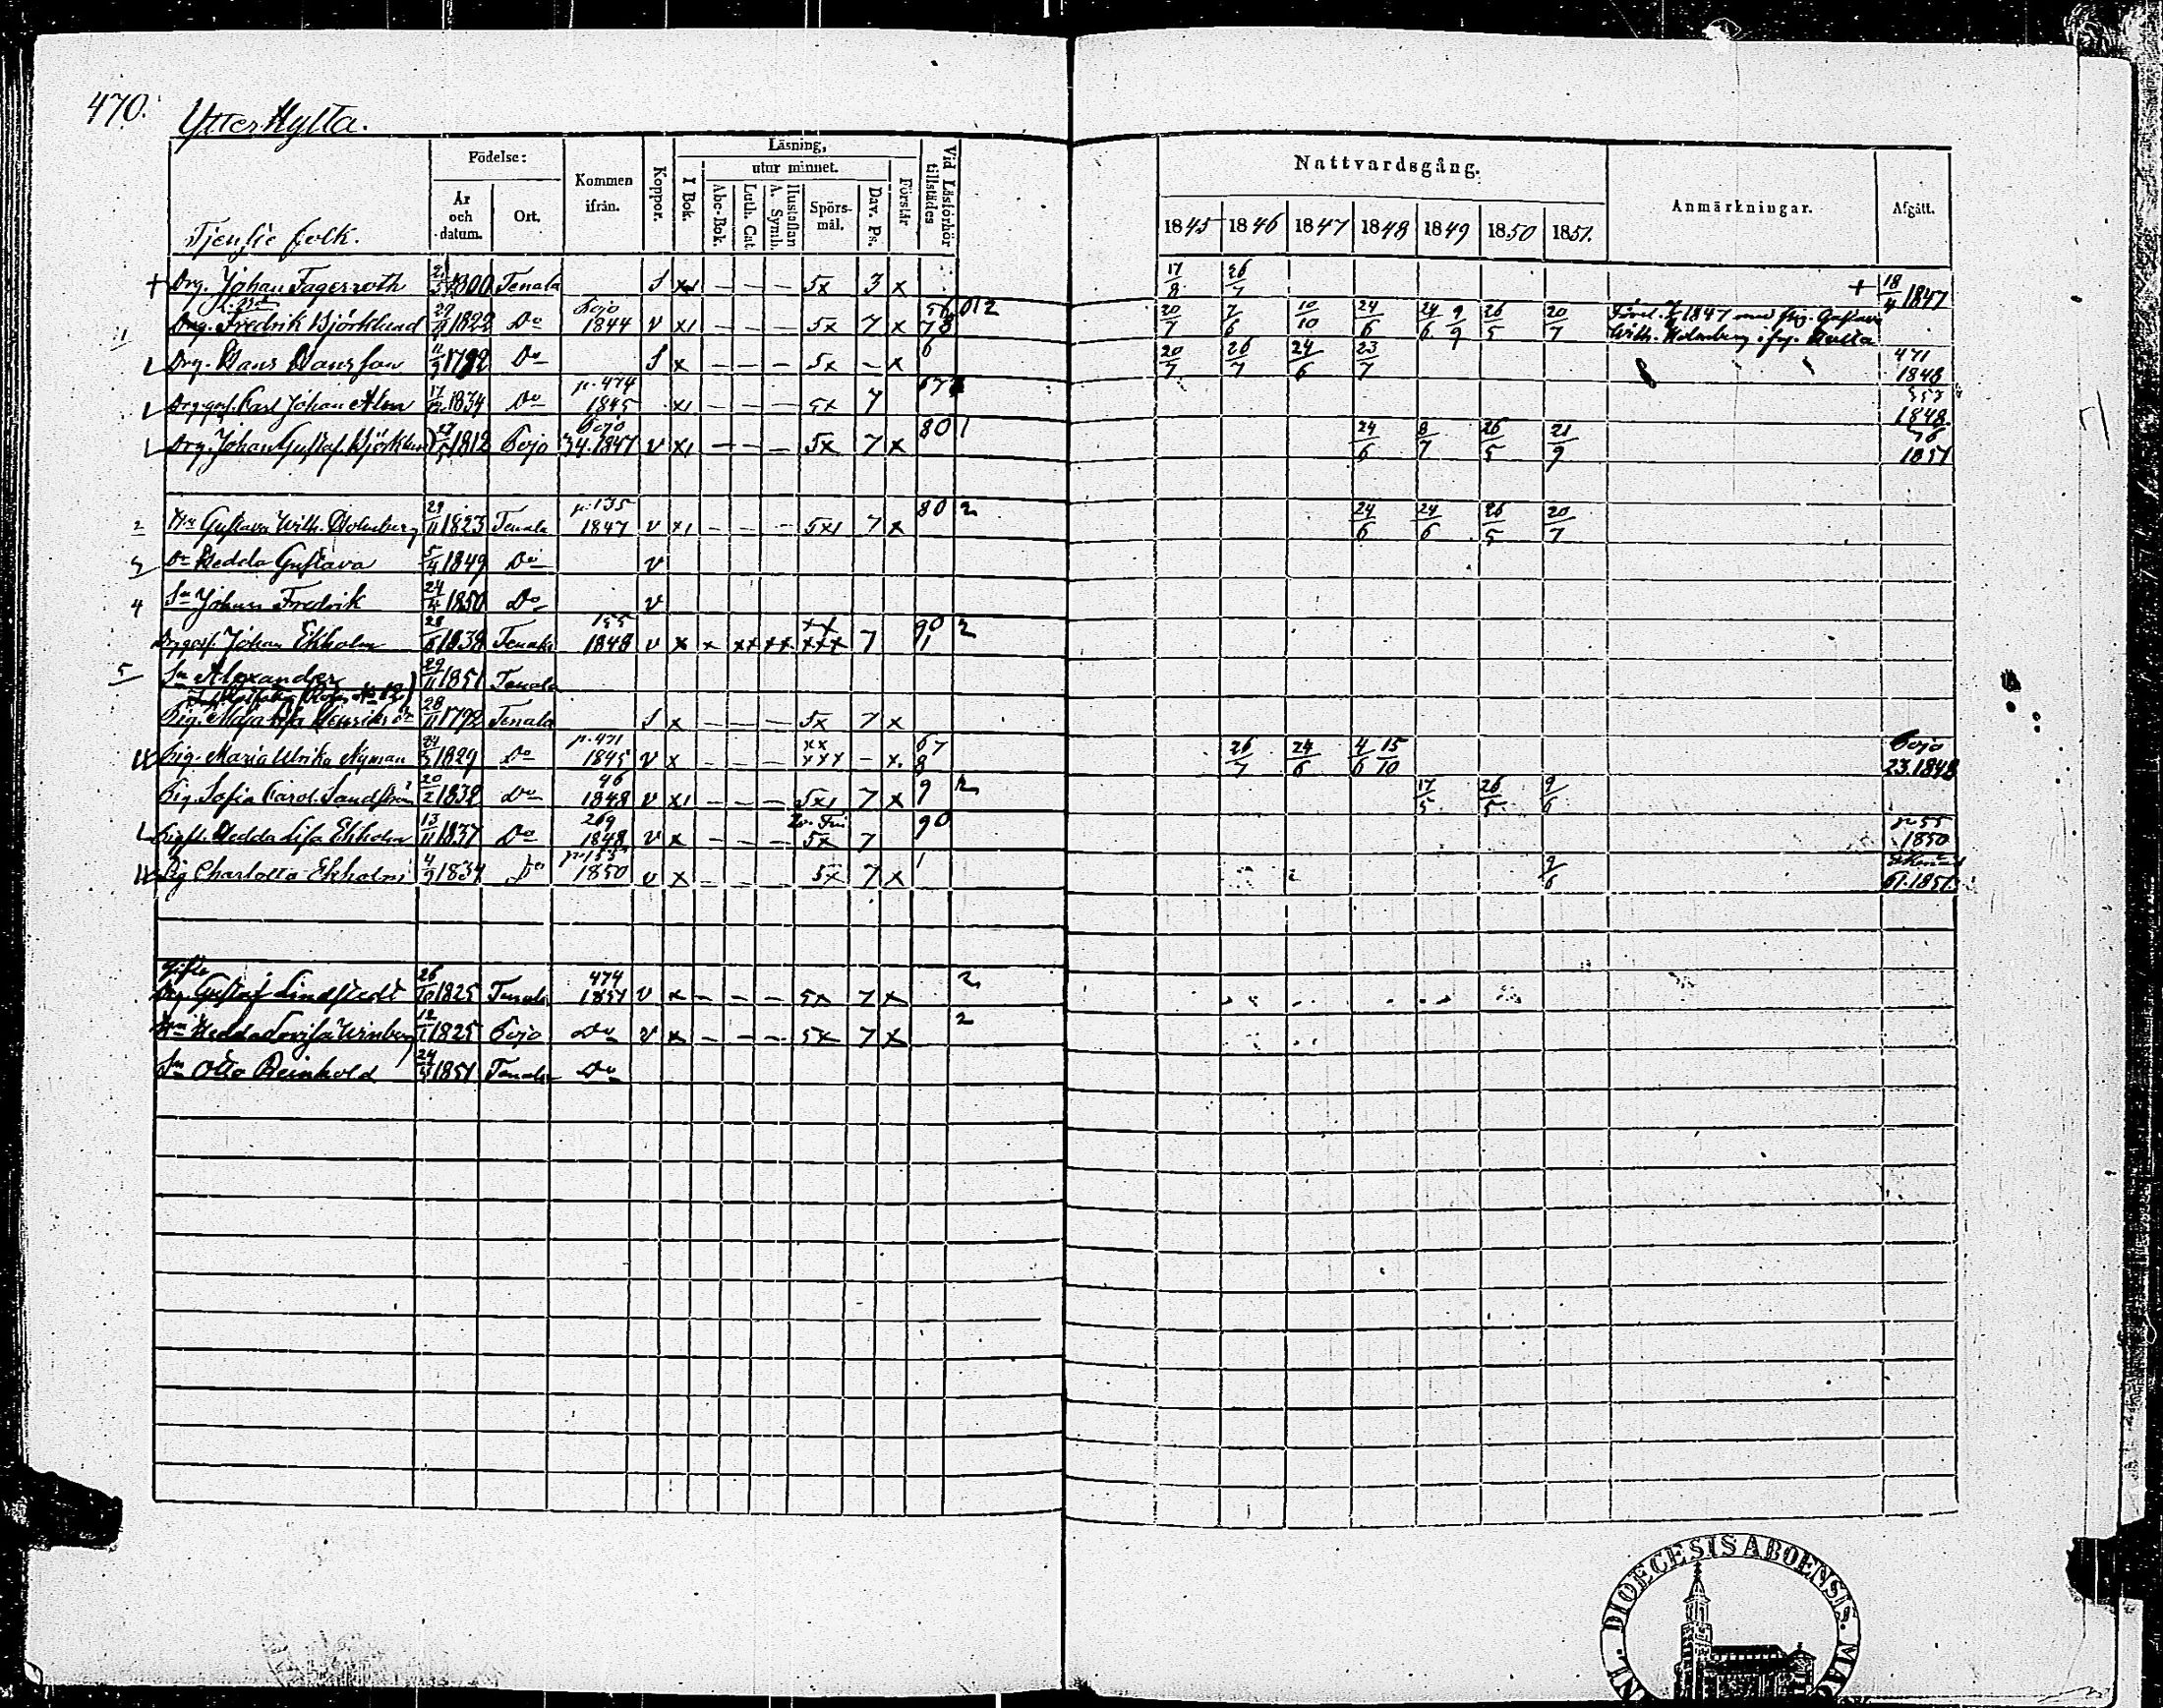 470.
Ytter Kylla.
Tjenste folk.
Födelse:
År och datum.
Ort.
Kommen ifrån.
Koppor.
Läsning,
I Bok.
utur minnet.
Abc-Bok.
Luth. Cat.
Hustaflan A. Symb.
Spörsmål.
Dav. Ps.
Förstår
Vid Läsförhör tillstädes
Nattvardsgång.
1845 1846 1847 1848 1849 1850 1851.
Anmärkningar.
Afgått.
+ Drg. Johan Fagerroth 1800 Tenala S 5x 3 x 17/8 26/7 + 18/4 1847
1 Drg. Fredrik Björklund 1822 Do Pojo 1844 v x1 – – – 5x 7 x 012 20/7 7/6 10/10 24/6 24/6 9/9 26/5 20/7 1847 med pig. Gustava Wilh. Holmberg
Drg. Hans Hansson 1792 Do S x – – – 5x – x 6 20/7 26/7 24/6 23/7 471 1848
Drg.gos. Carl Johan Alm 17 1834 Do p. 474 1845 x1 5x 7 1848.
Drg. Johan Gustaf Björklund 1812 Pojo Pojo 34.1847 v x1 – – – 5x 7 x 80 1 24/6 8/7 26/5 21/9 1851
2 Gustava Wilh. Holmberg 29/11 1823 Tenala p. 135 1847 v x1 – – – 5x1 7 x 80 2 24/6 24/6 26/5 20/7
3 Dr Hedda Gustava 5/4 1849 Do v
4 Sn Johan Fredrik 24/4 1850 Do v
Drg.gos. Johan Ekholm 28/6 1838 Tenala 155 1848 v x x xx xx xx xxx 7 90 1 2
5 Sn Alexander 29/11 1851 Tenala
Pig. Maja Henriksdr 28/11 1792 Tenala S x – – – 5x 7 x
Pig. Maria Ulrika Nyman 1829 Do p. 471 1845 v x xx xxx – x. 67 8 26/7 24/6 4/6 15/10 Pojo 23.1848
Pig. Sofia Carol. Sandström 20/2 1832 Do 46 1848 v x1 – – – 5x1 7 x 9 2 17/5 26/5 9/6
Hedda Lisa Ekholm 13/11 1837 Do 269 1848 v x – – – 5x 7 90 p. 55 1850
Pig Charlotta Ekholm 4/9 1834 Do p. 155 1850 v x – – – 5x 7 x 1 9/6 61.1851
Gifte
Drg. Gustaf Lindstedt 26/10 1825 Tenala 474 1851 v x – – – 5x 7 x 2
Hedda Lovisa Wirnberg 12/1 1825 Pojo Do v x – – – 5x 7 x 2
Sn Otto Reinhold 24 1851 Tenala Do
DIOECESIS ABOENSIS